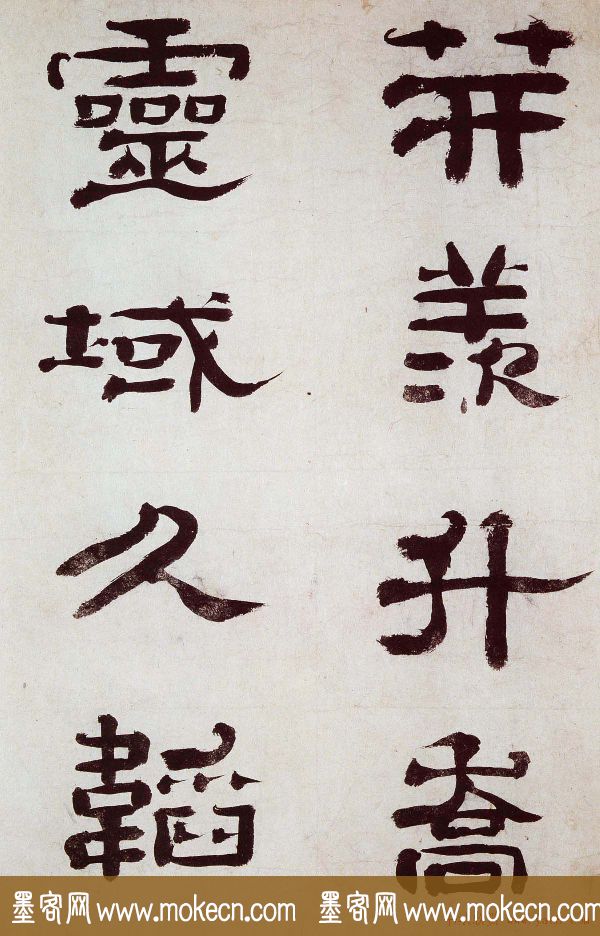 笄羨升喬
靈域久韜
墨客网 www.mokecn.com 墨客网 www.mokecn.com